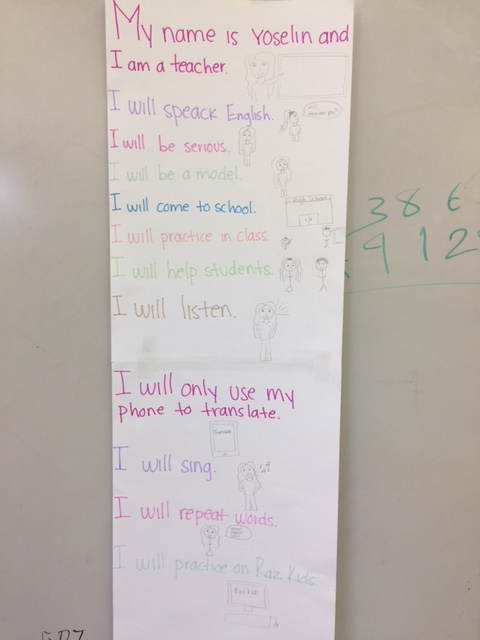 My name is Yoselin and
I am a teacher.
I will speack English.
I will be serious.
I will be a model.
I will come to school.
High School
I will practice in class
I will help students.
I will listen.
I will only use my
phone to translate.
I will sing.
I will repeat words.
I will practice on Raz Kids.
Raz Kids
386
912